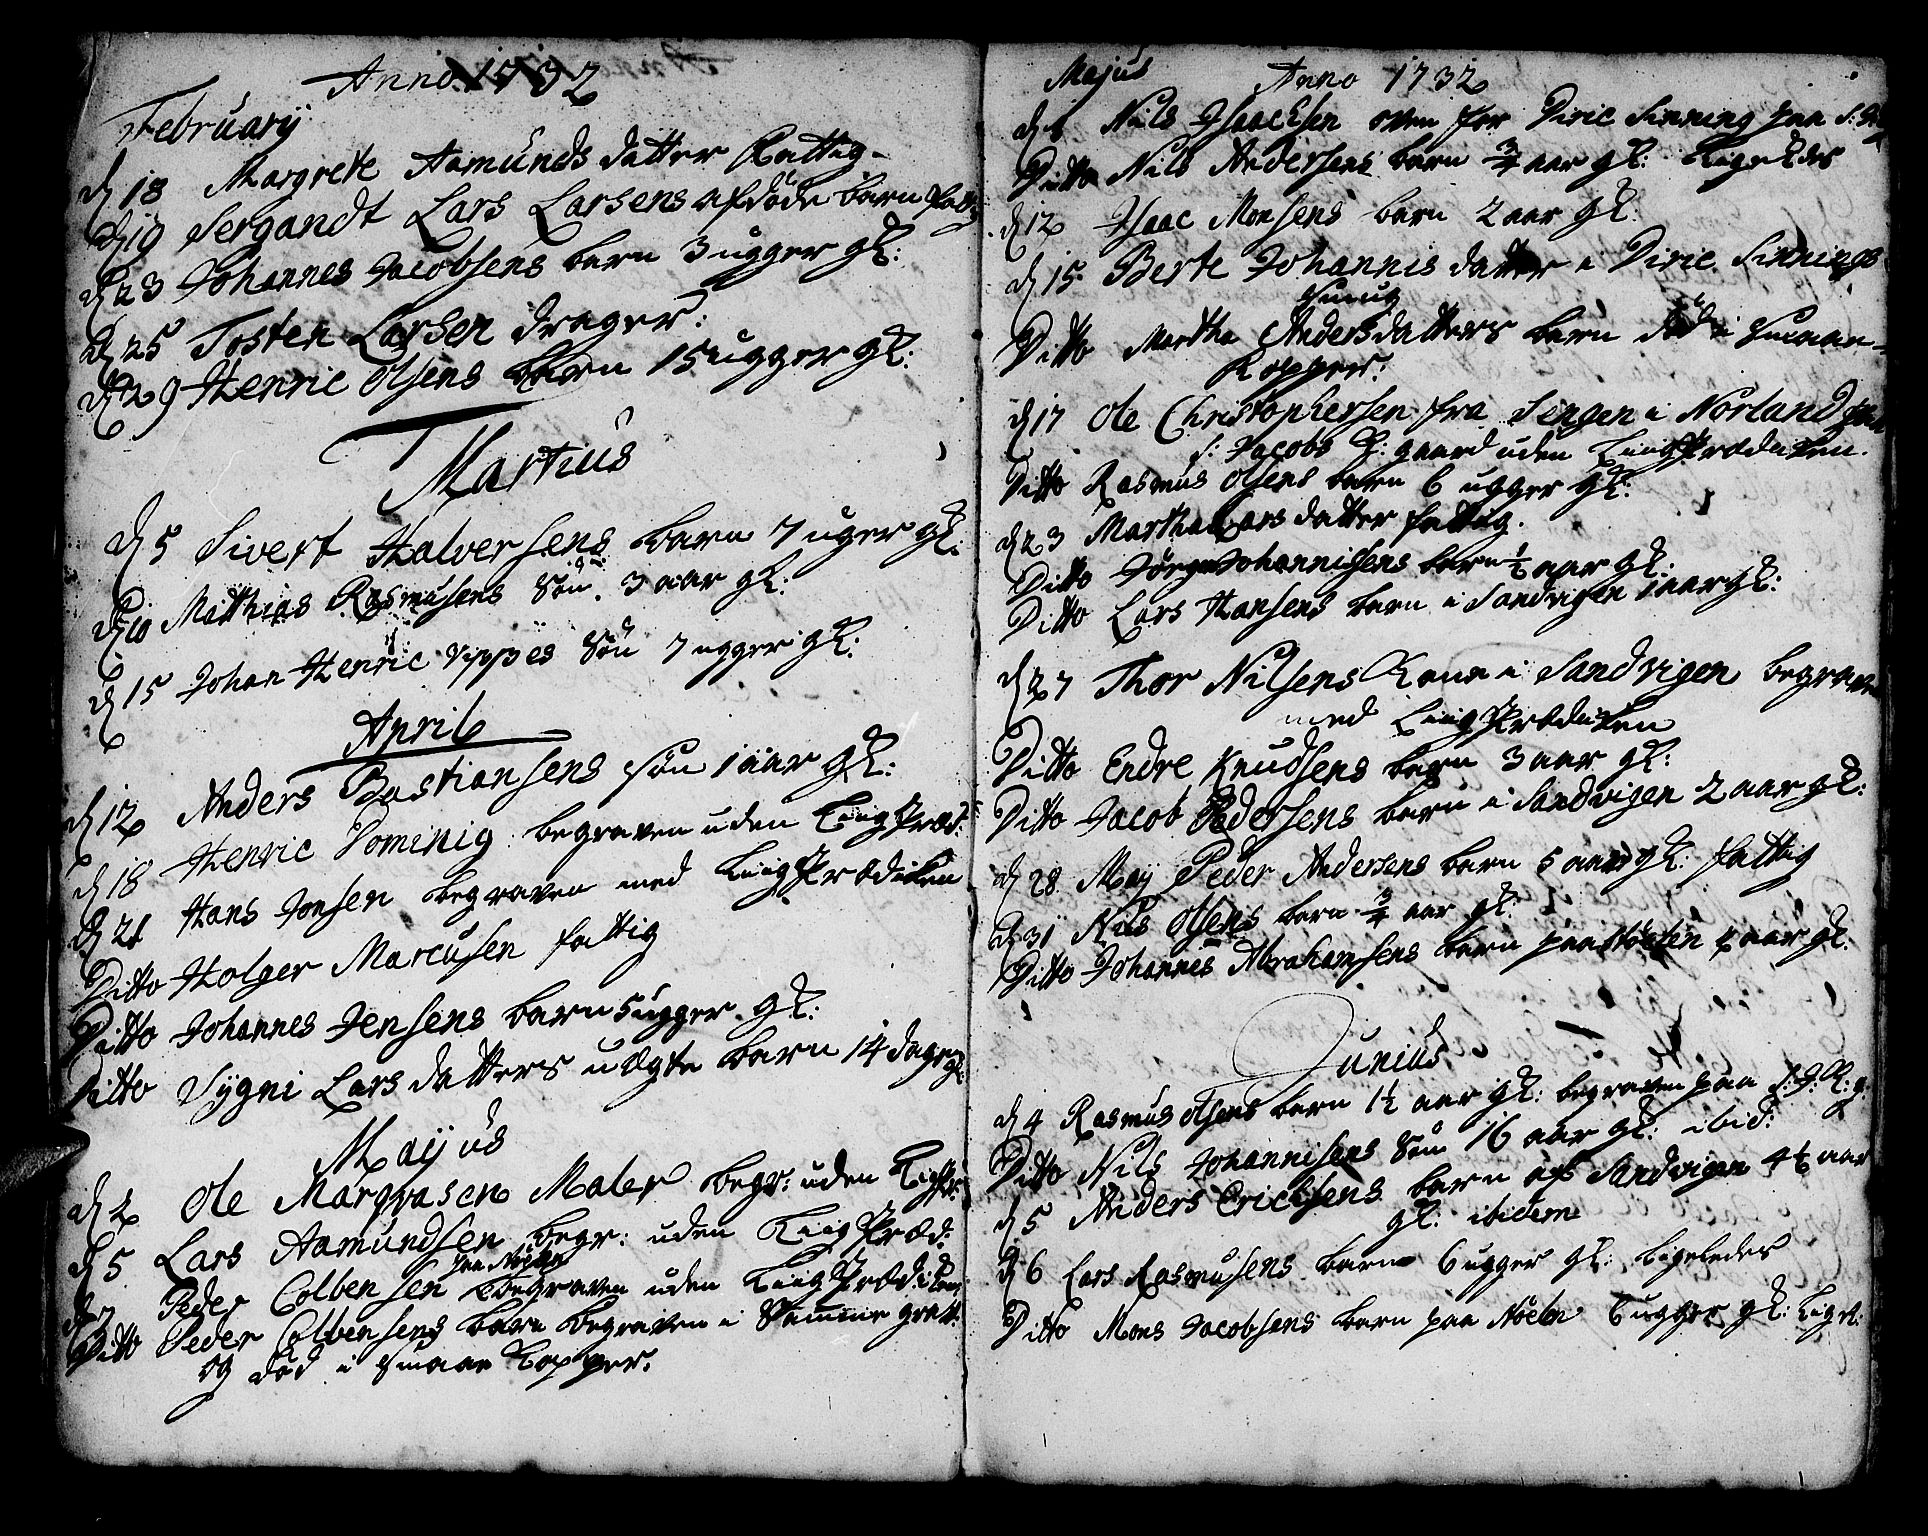 Anno 1732
February
d 18 Margrete Aamunds datter Fattig
d 19 Sergandt Lars Larsens afdøde barn fatt:
d 23 Johannes Jacobsens barn 3 ugger gl:
d 25 Tosten Larsen drager:
d 29 Henric Olsens barn 15 ugger gl:
Martius
d 5 Sivert Halversens barn 7 uger gl:
d 10 Mathias Rasmusens Søn 3 aar gl:
d 15 Johan Henric Søn 7 ugger gl:
April
d 12 Anders Bastiansens søn 1 aar gl:
d 18 Henric Dominig begraven uden Liigpræd:
d 21 Hans Jonsen begraven med Liigprædiken
Ditto Holger Marcusen fattig
Ditto Johannes Jensens barn 5 ugger gl:
Ditto Sygni Lars datters uægte barn 14 dage gl:
Mayus
d 2 Ole Marqvasen Maler begr: uden Ligpr:
d 5 Lars Aamundsen begr: uden Liigpræd:
paa Nøstet
d 7 Peder Colbensen begraven uden Liigprædiken
Ditto Peder Colbensens barn begraven i Samme graff:
og død i Smaae Kopper.
Majus Anno 1732
d Nils Isaachsen oven for Diric Sinning paa S:
Ditto Nils Andersens barn 3/4 aar gl: Ligeledes
d 12 Isaac Monsens barn 2 aar gl:
d 15 Berte Johannis datter i Diric Sinnings
Smug
Ditto Martha Andersdatters barn død i Smaae
Kopper:
d 17 Ole Christophersen fra Sengen i Norland paa
S: Jacobs K: gaard uden Liigprædiken.
Ditto Rasmus Olsens barn 6 ugger gl:
d 23 Martha Lars datter fattig.
Ditto Jørgen Johannisens barn 1/2 aar gl:
Ditto Lars Hansens barn i Sandvigen 1 aar gl:
d 27 Thor Nilsens Kone i Sandvigen begraven
med Liigprædiken
Ditto Endre Knudsens barn 3 aar gl:
Ditto Jacob Pedersens barn i Sandvigen 2 aar gl:
d 28 May Peder Andersens barn 5 aar gl: fattig
d 31 Nils Olsens barn 3/4 aar gl:
Ditto Johannes Abrahamsens barn paa Nøsten aar gl:
Junius
d 4 Rasmus Olsens barn 1 1/2 aar gl: begraven paa S: J: K: g:
Ditto Nils Johannisens Søn 16 aar gl: ibid:
d 5 Anders Erichsens barn af Sandvigen 4 1/2 aar
gl: ibidem
d 6 Lars Rasmusens barn 6 ugger gl: ligeledes
Ditto Mons Jacobsens barn paa Nøsten 6 ugger gl: Ligel: